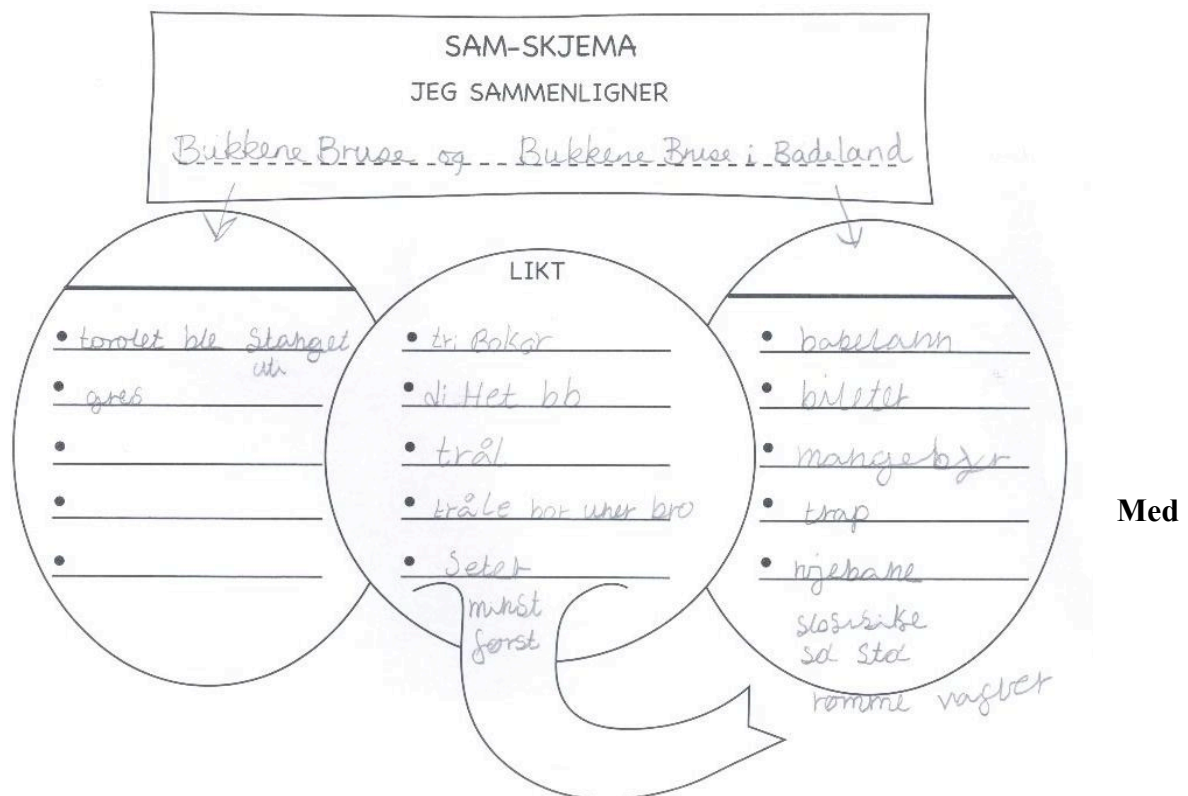 SAM-SKJEMA
JEG SAMMENLIGNER
Bukkene Bruse og Bukkene Bruse i Badeland
• torolet ble Stanget
uti
• gres
•
•
•
LIKT
• tri Bokar
• di Het bb
• trål
• tråle bor uner bro
• Seter
minst
først
• badelann
• bileter
• mange byr
• trap
•
så Stor
rømme
Med